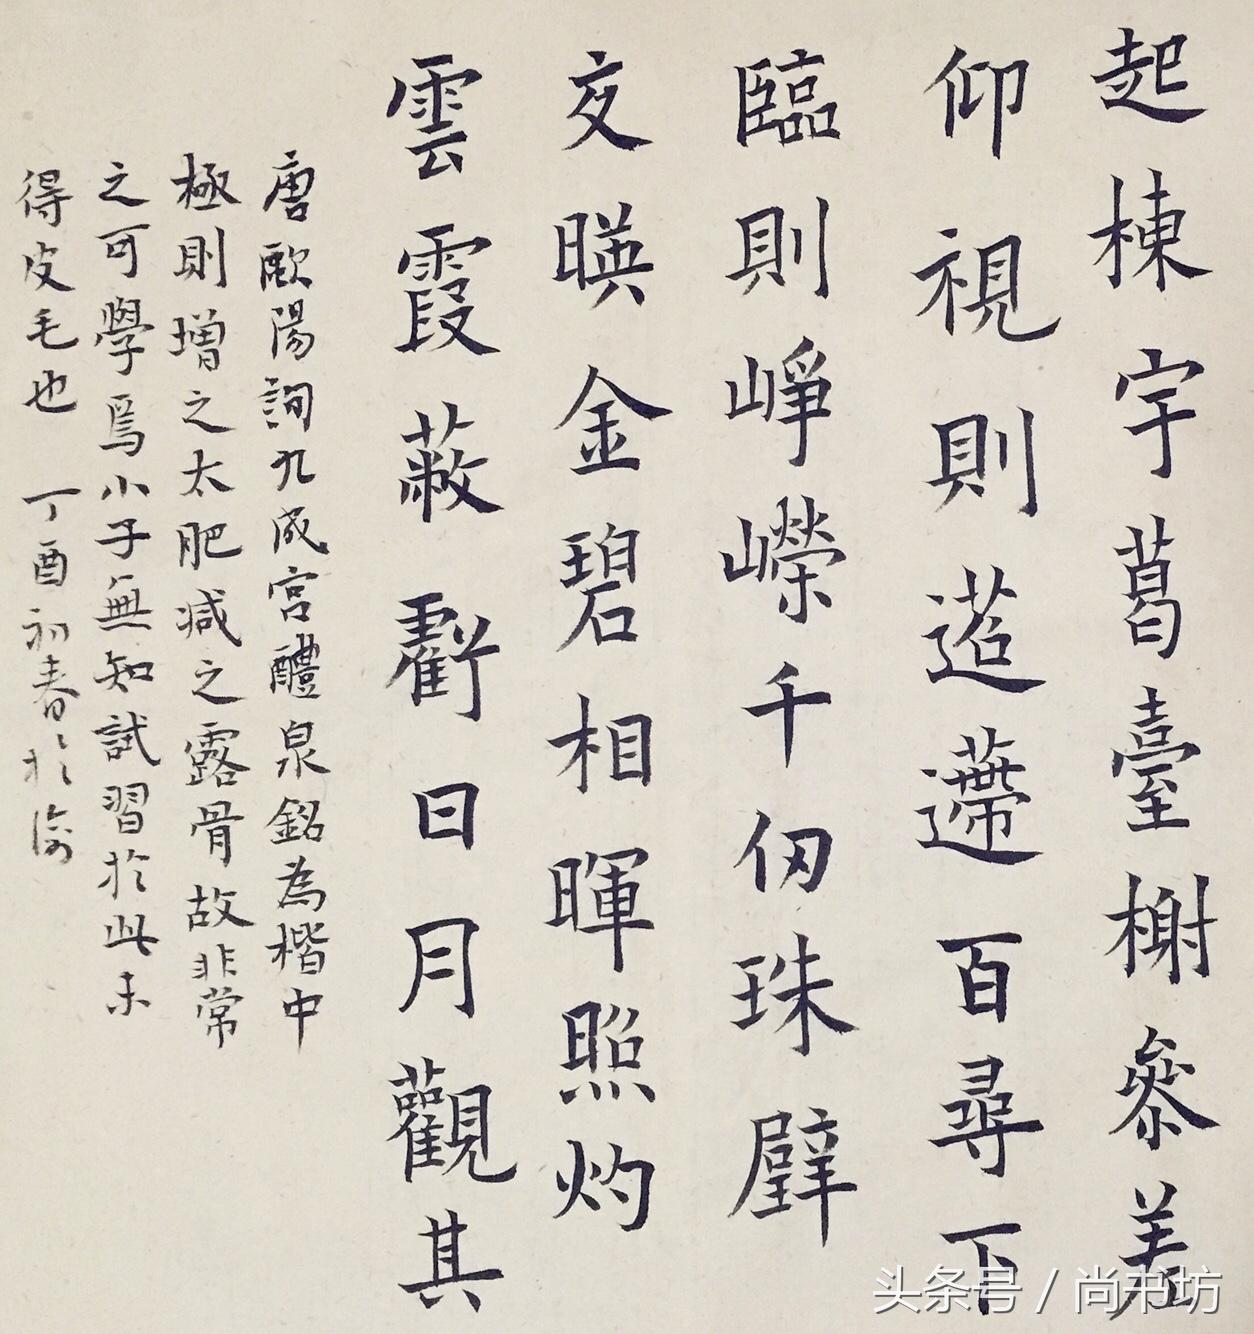 起棟宇葛臺榭參差
仰視則迢遰百尋下
臨則崢嶸千仞珠壁
交暎金碧相暉照灼
雲霞蔽虧日月觀其
唐歐陽詢九成宮醴泉銘為楷中
極則增之太肥減之露骨故非常
之可學焉小子無知試習於此未
得皮毛也 丁酉初春於渝
头条号 / 尚书坊